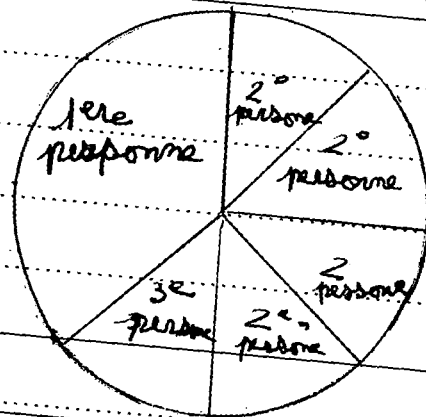 1ere
personne
2°
persone
2°
personne
2
persone
2e
persone
3e
persone